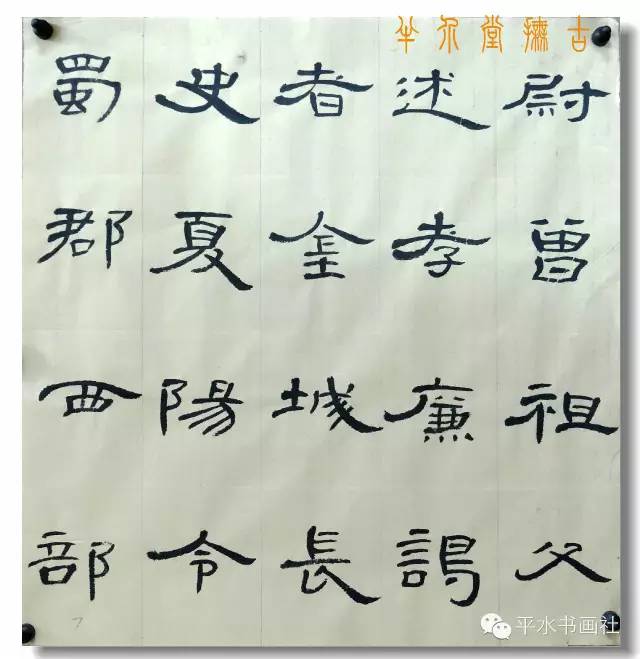 半 堂 古
尉曾祖父
述孝廉謁
者金城長
史夏陽令
蜀郡西部
平水书画社